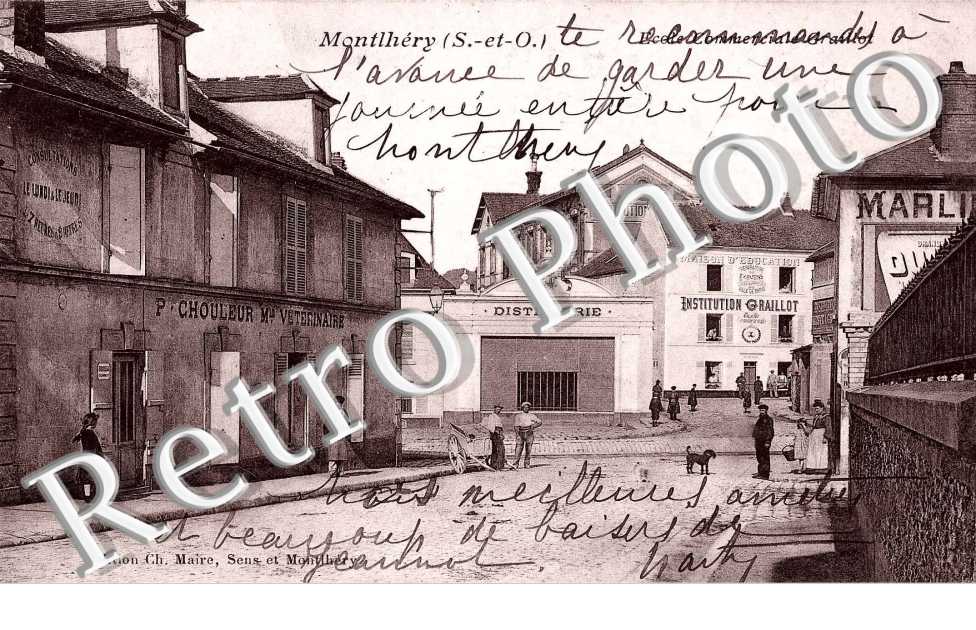 Montlhéry (S.-et-O.)
Ecole Commerciale Graillot
te recommande à
l'avance de garder une
journée entière pour
Montlhéry
CONSULTATIONS
LE LUNDI & LE JEUDI
MARLI
MAISON D'ÉDUCATION
INSTITUTION GRAILLOT
DISTILLERIE
P. CHOULEUR Md VÉTÉRINAIRE
Retro Photo
Nos meilleures amitiés
et beaucoup de baisers de
Jeannot.
Ch. Maire, Sens et Montlhéry